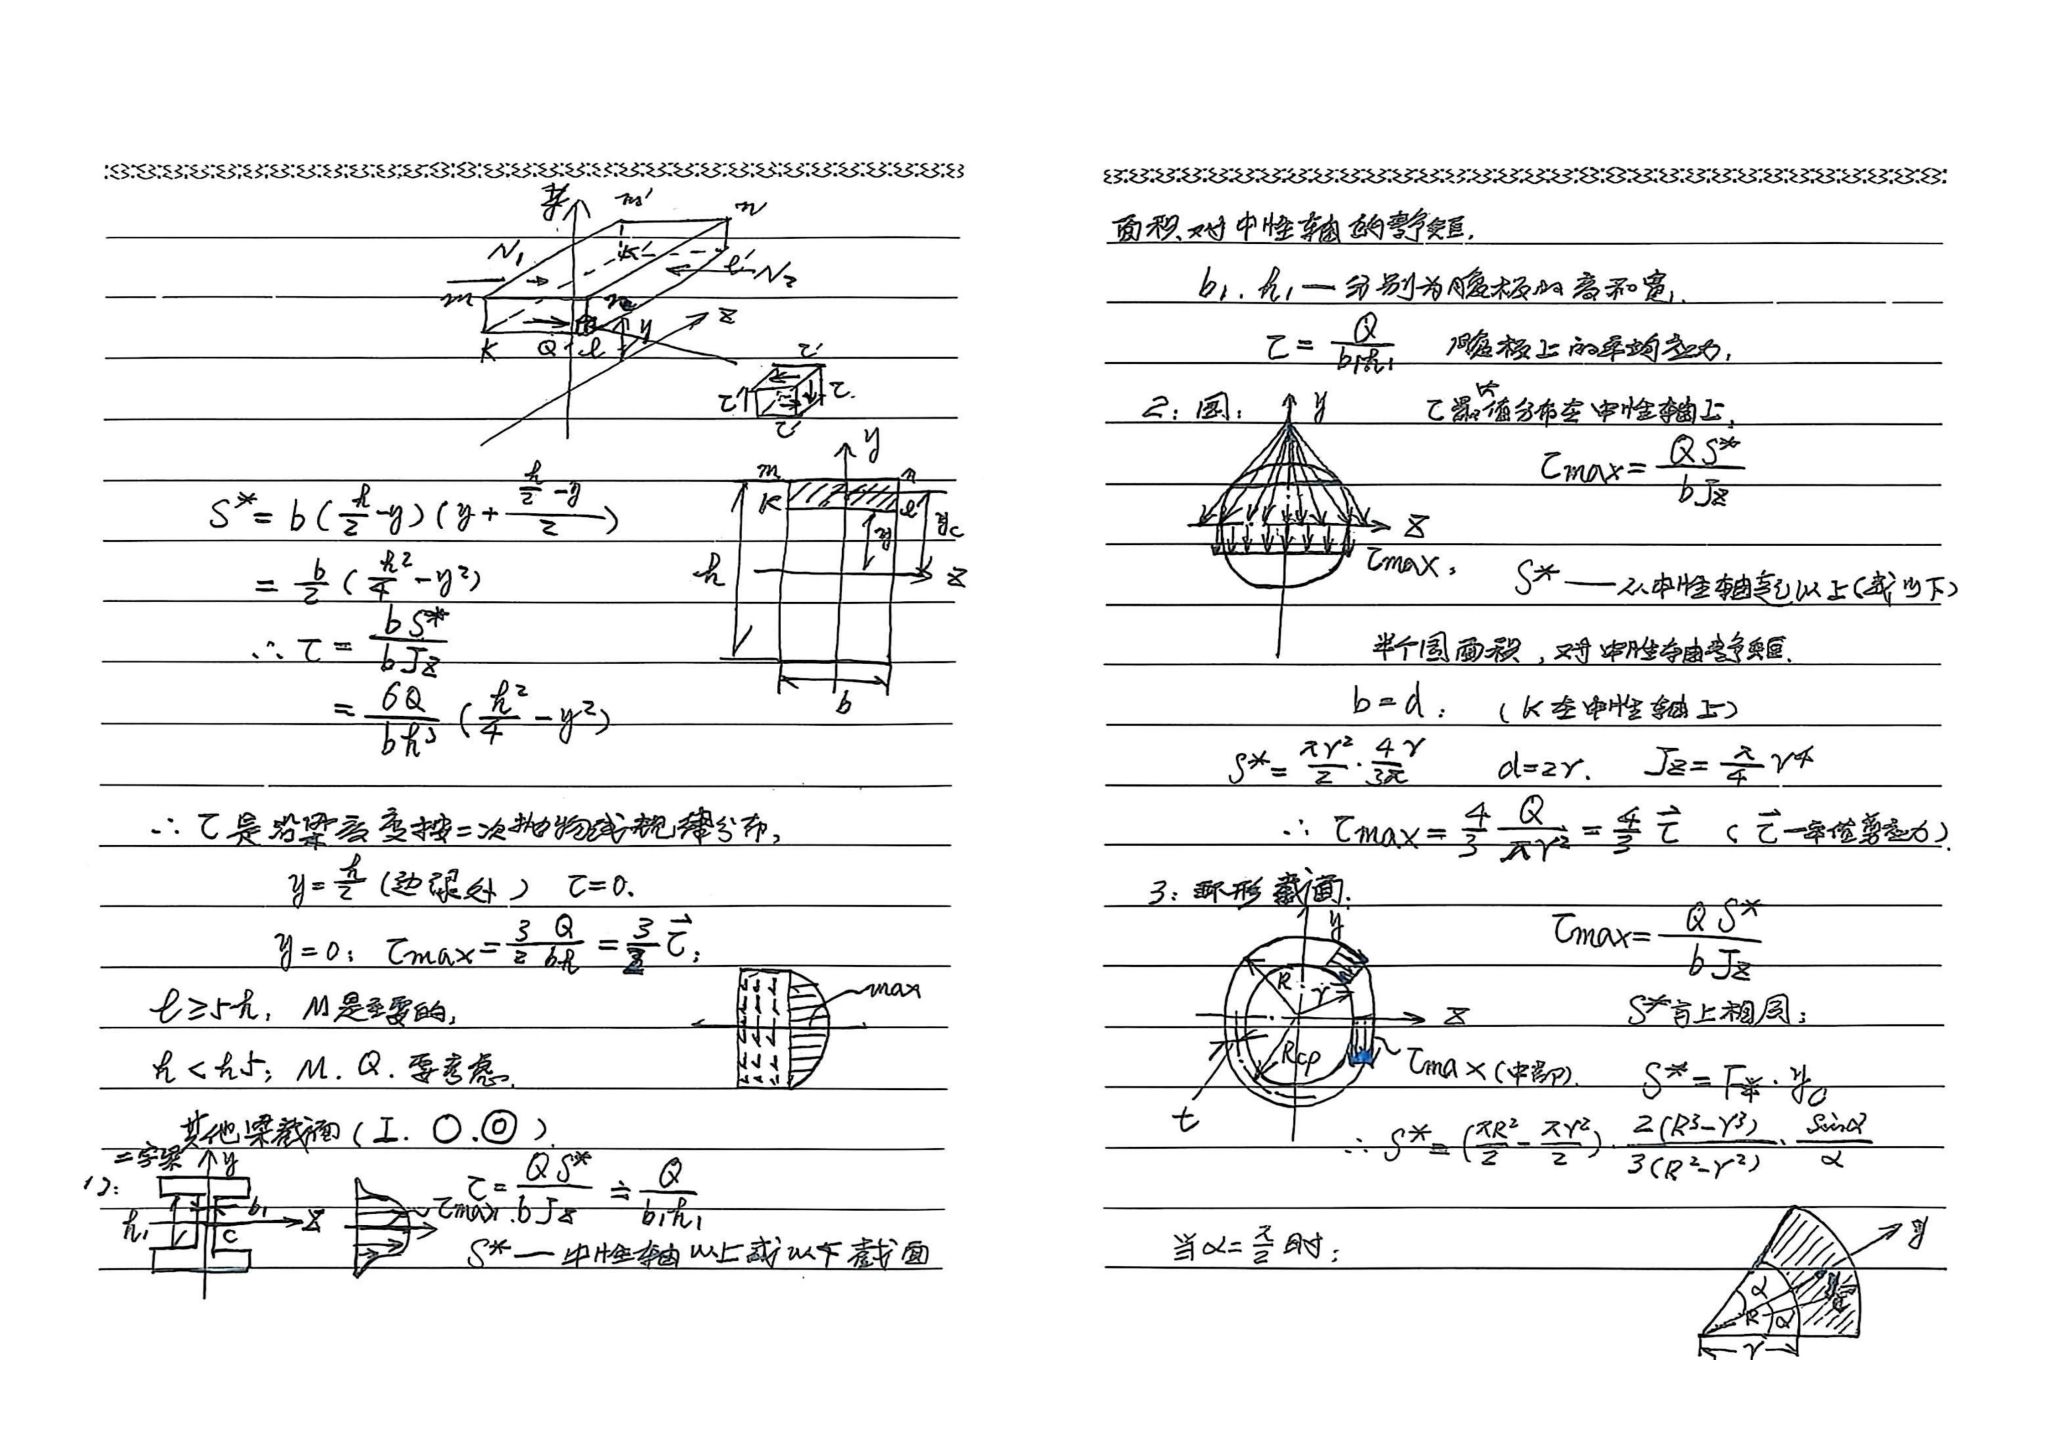 y
m' n'
N₁ K' l' N₂
m n y z
K Q l
τ' τ τ' τ
S* = b(h/2 - y)(y + (h/2 - y)/2)
= b/2 (h²/4 - y²)
∴ τ = bS*/bJz
= 6Q/bh³ (h²/4 - y²)
y
m n
K l
h y yc z
b
∴ τ是沿梁高度按二次抛物线规律分布,
y = h/2 (边缘处) τ = 0.
y = 0; τmax = 3/2 Q/bh = 3/2 τ̄;
l ≥ 5h, M是主要的,
h < h5; M. Q. 要考虑.
max
其他梁截面(I. ○. ◎).
工字梁
1):
y
h₁ b₁ z
C
τmax
τ = QS*/bJz ≐ Q/b₁h₁
S* — 中性轴以上或以下截面
面积对中性轴的静矩.
b₁. h₁ — 分别为腹板的高和宽.
τ = Q/b₁h₁ 腹板上的平均应力.
2: 圆: y τ最大值分布在中性轴上,
τmax = QS*/bJz
z
τmax, S* — 从中性轴起以上(或以下)
半个圆面积, 对中性轴静矩.
b = d; (K在中性轴上)
S* = πr²/2 · 4r/3π d = 2r. Jz = π/4 r⁴
∴ τmax = 4/3 Q/πr² = 4/3 τ̄ (τ̄ — 平值剪应力).
3: 环形截面.
y
τmax = QS*/bJz
R r z
S*与上相同;
Rcp
τmax(中部). S* = F半 · yc
t
∴ S* = (πR²/2 - πr²/2) · 2(R³-r³)/3(R²-r²) · sinα/α
当α = π/2时;
y
α
R α
r